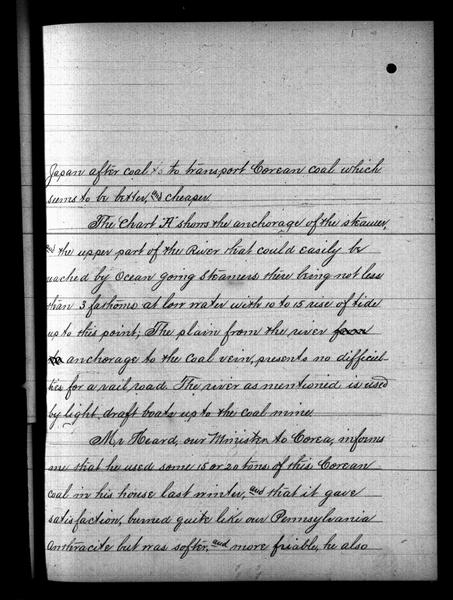 Japan after coal to to transport Corean coal which
seems to be better, and cheaper.
The Chart "A" shows the anchorage of the steamer,
and the upper part of the River that could easily be
reached by Ocean going Steamers there being not less
than 3 fathoms at low water with 10 to 15 rise of tide
up to this point; The plain from the river from
to anchorage to the coal vein, presents no difficul-
ties for a rail road. The river as mentioned is used
by light draft boats up to the coal mine.
Mr Heard, our Minister to Corea, informs
me that he used some 15 or 20 tons of this Corean
coal in his house last winter, and that it gave
satisfaction, burned quite like our Pennsylvania
anthracite but was softer, and more friable, he also